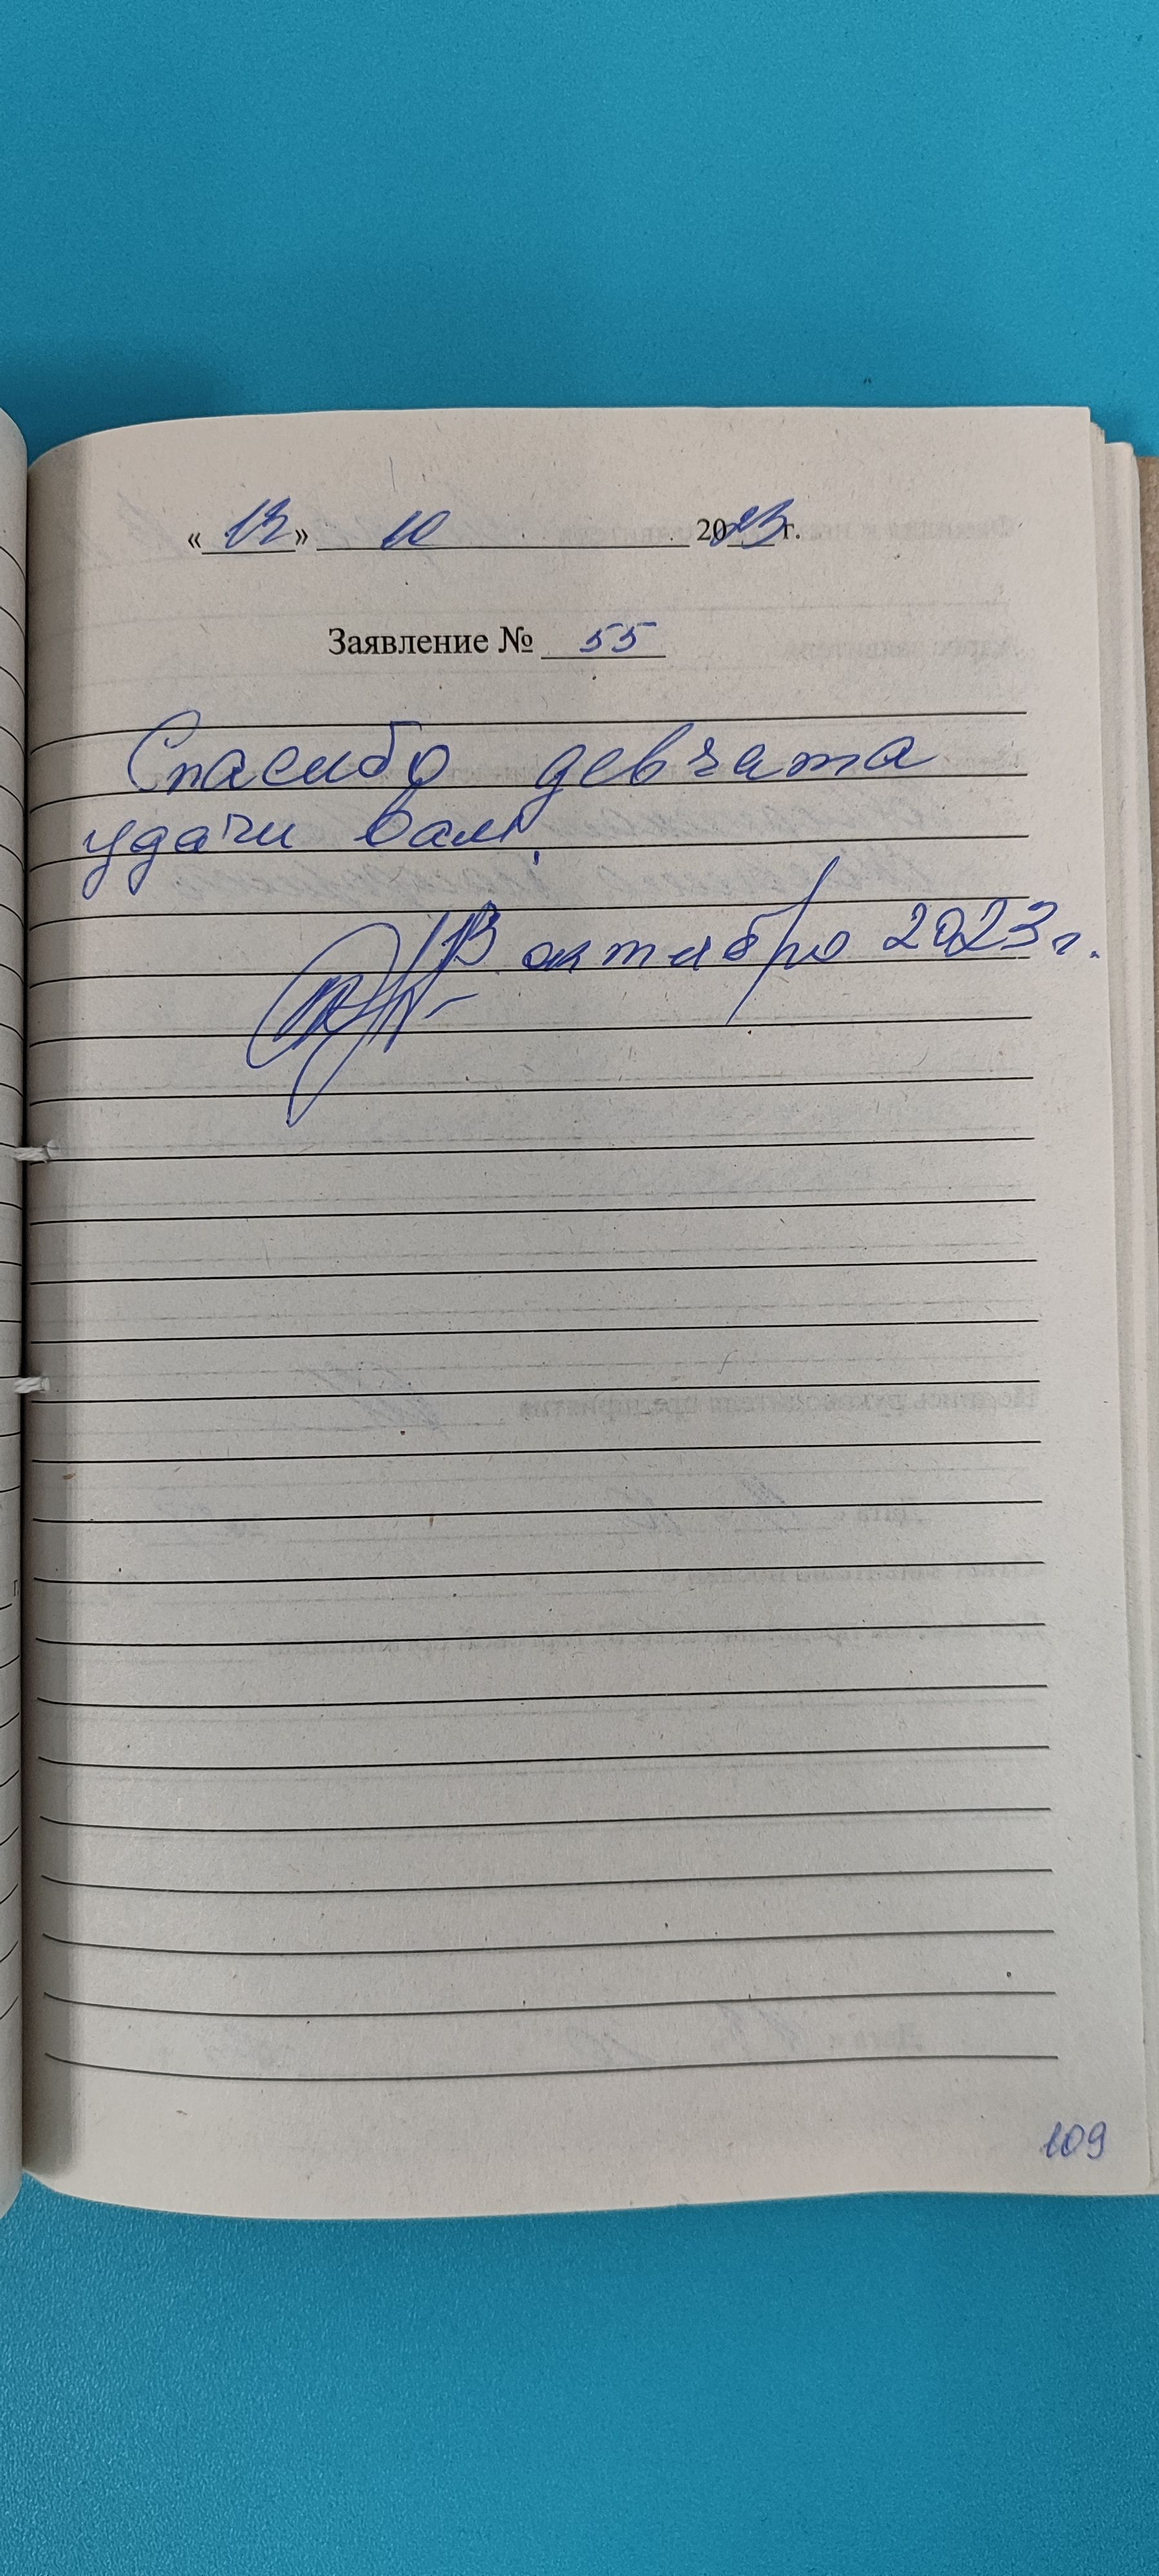 «13» 10 2023 г.
Заявление № 55
Спасибо девчата
удачи вам!
13 октября 2023 г.
109